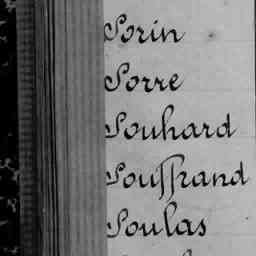 Sorin
Sorre
Souhard
Souffrand
Soulas